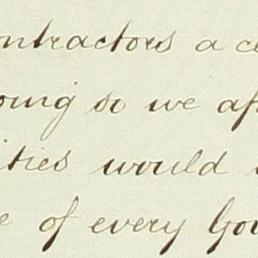 ontractors a c
oing so we af
ities would
e of every Gov